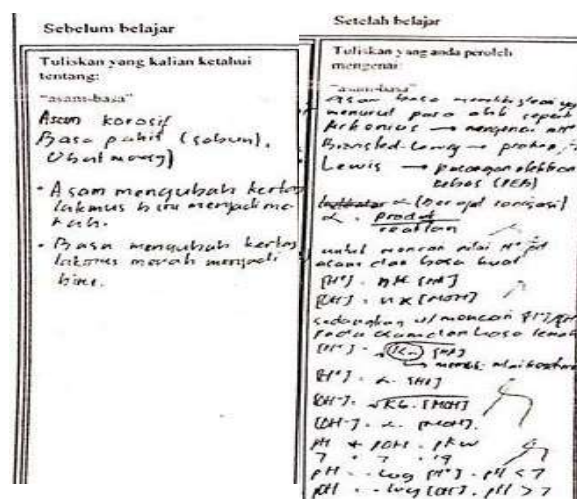 Sebelum belajar
Tuliskan yang kalian ketahui
tentang:
"asam-basa"
Asam korosif
Basa pahit (sabun),
Obat maag)
• Asam mengubah kertas
lakmus biru menjadi me
rah.
• Basa mengubah kertas
lakmus merah menjadi
biru.
Setelah belajar
Tuliskan yang anda peroleh
mengenai:
"asam-basa"
Asam basa
menurut para ahli seperti
Arhenius → mengenai
Bronsted-Lowry → proton
Lewis → pasangan elektron
bebas (PEB)
α (Derajat ionisasi)
α = produk
reaktan
untuk mencari nilai H⁺
asam dan basa kuat
[H⁺] = n x [HA]
[OH⁻] = n x [MOH]
sedangkan u/ mencari
pada asam dan basa lemah
[H⁺] = √Ka . [HA]
[H⁺] = α . [HA]
[OH⁻] = √Kb . [MOH]
[OH⁻] = α . [MOH]
pH + pOH = pKw
7 + 7 = 14
pH = - log [H⁺] . pH < 7
pOH = - log [OH] . pH > 7